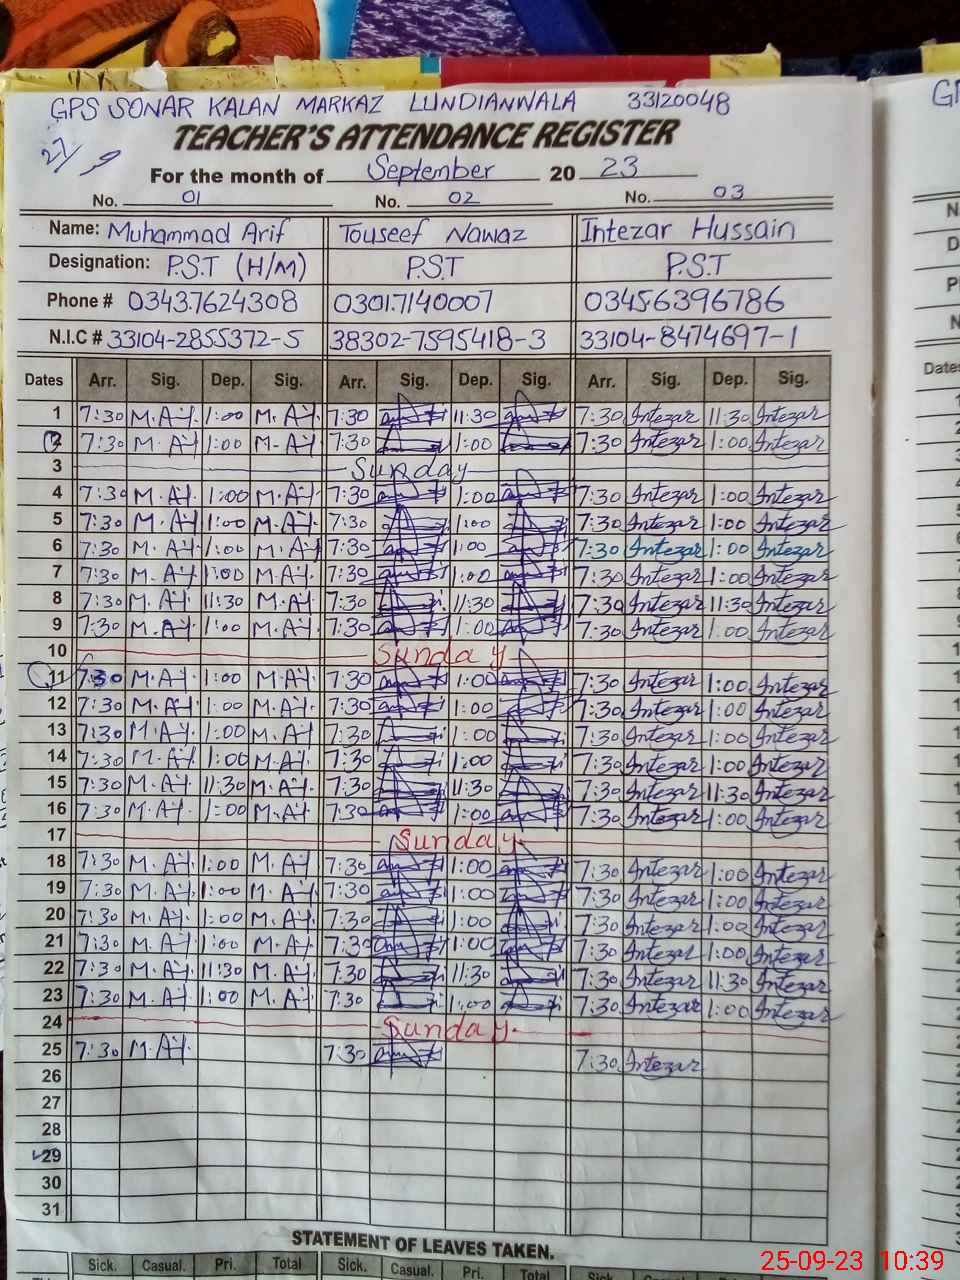 GPS SONAR KALAN MARKAZ LUNDIANWALA 33120048
TEACHER'S ATTENDANCE REGISTER
27/9
For the month of September 20 23
No. 01 No. 02 No. 03
Name: Muhammad Arif Touseef Nawaz Intezar Hussain
Designation: P.S.T (H/M) P.S.T P.S.T
Phone # 0343.7624308 0301.7140007 03456396786
N.I.C # 33104-2855372-5 38302-7595418-3 33104-8474697-1
Dates Arr. Sig. Dep. Sig. Arr. Sig. Dep. Sig. Arr. Sig. Dep. Sig.
1 7:30 M.A 1:00 M.A 7:30 11:30 7:30 Intezar 11:30 Intezar
2 7:30 M.A 1:00 M-A 7:30 1:00 7:30 Intezar 1:00 Intezar
3 Sunday
4 7:30 M.A 1:00 M.A 7:30 1:00 7:30 Intezar 1:00 Intezar
5 7:30 M.A 1:00 M.A 7:30 1:00 7:30 Intezar 1:00 Intezar
6 7:30 M.A 1:00 M.A 7:30 1:00 7:30 Intezar 1:00 Intezar
7 7:30 M.A 1:00 M.A 7:30 1:00 7:30 Intezar 1:00 Intezar
8 7:30 M.A 11:30 M.A 7:30 11:30 7:30 Intezar 11:30 Intezar
9 7:30 M.A 1:00 M.A 7:30 1:00 7:30 Intezar 1:00 Intezar
10 Sunday
11 7:30 M.A 1:00 M.A 7:30 1:00 7:30 Intezar 1:00 Intezar
12 7:30 M.A 1:00 M.A 7:30 1:00 7:30 Intezar 1:00 Intezar
13 7:30 M.A 1:00 M.A 7:30 1:00 7:30 Intezar 1:00 Intezar
14 7:30 M.A 1:00 M.A 7:30 1:00 7:30 Intezar 1:00 Intezar
15 7:30 M.A 11:30 M.A 7:30 11:30 7:30 Intezar 11:30 Intezar
16 7:30 M.A 1:00 M.A 7:30 1:00 7:30 Intezar 1:00 Intezar
17 Sunday
18 7:30 M.A 1:00 M.A 7:30 1:00 7:30 Intezar 1:00 Intezar
19 7:30 M.A 1:00 M.A 7:30 1:00 7:30 Intezar 1:00 Intezar
20 7:30 M.A 1:00 M.A 7:30 1:00 7:30 Intezar 1:00 Intezar
21 7:30 M.A 1:00 M.A 7:30 1:00 7:30 Intezar 1:00 Intezar
22 7:30 M.A 11:30 M.A 7:30 11:30 7:30 Intezar 11:30 Intezar
23 7:30 M.A 1:00 M.A 7:30 1:00 7:30 Intezar 1:00 Intezar
24 Sunday
25 7:30 M.A 7:30 7:30 Intezar
26
27
28
29
30
31
STATEMENT OF LEAVES TAKEN.
Sick. Casual. Pri. Total Sick. Casual. Pri. Total Sick. Casual. Pri. Total
25-09-23 10:39